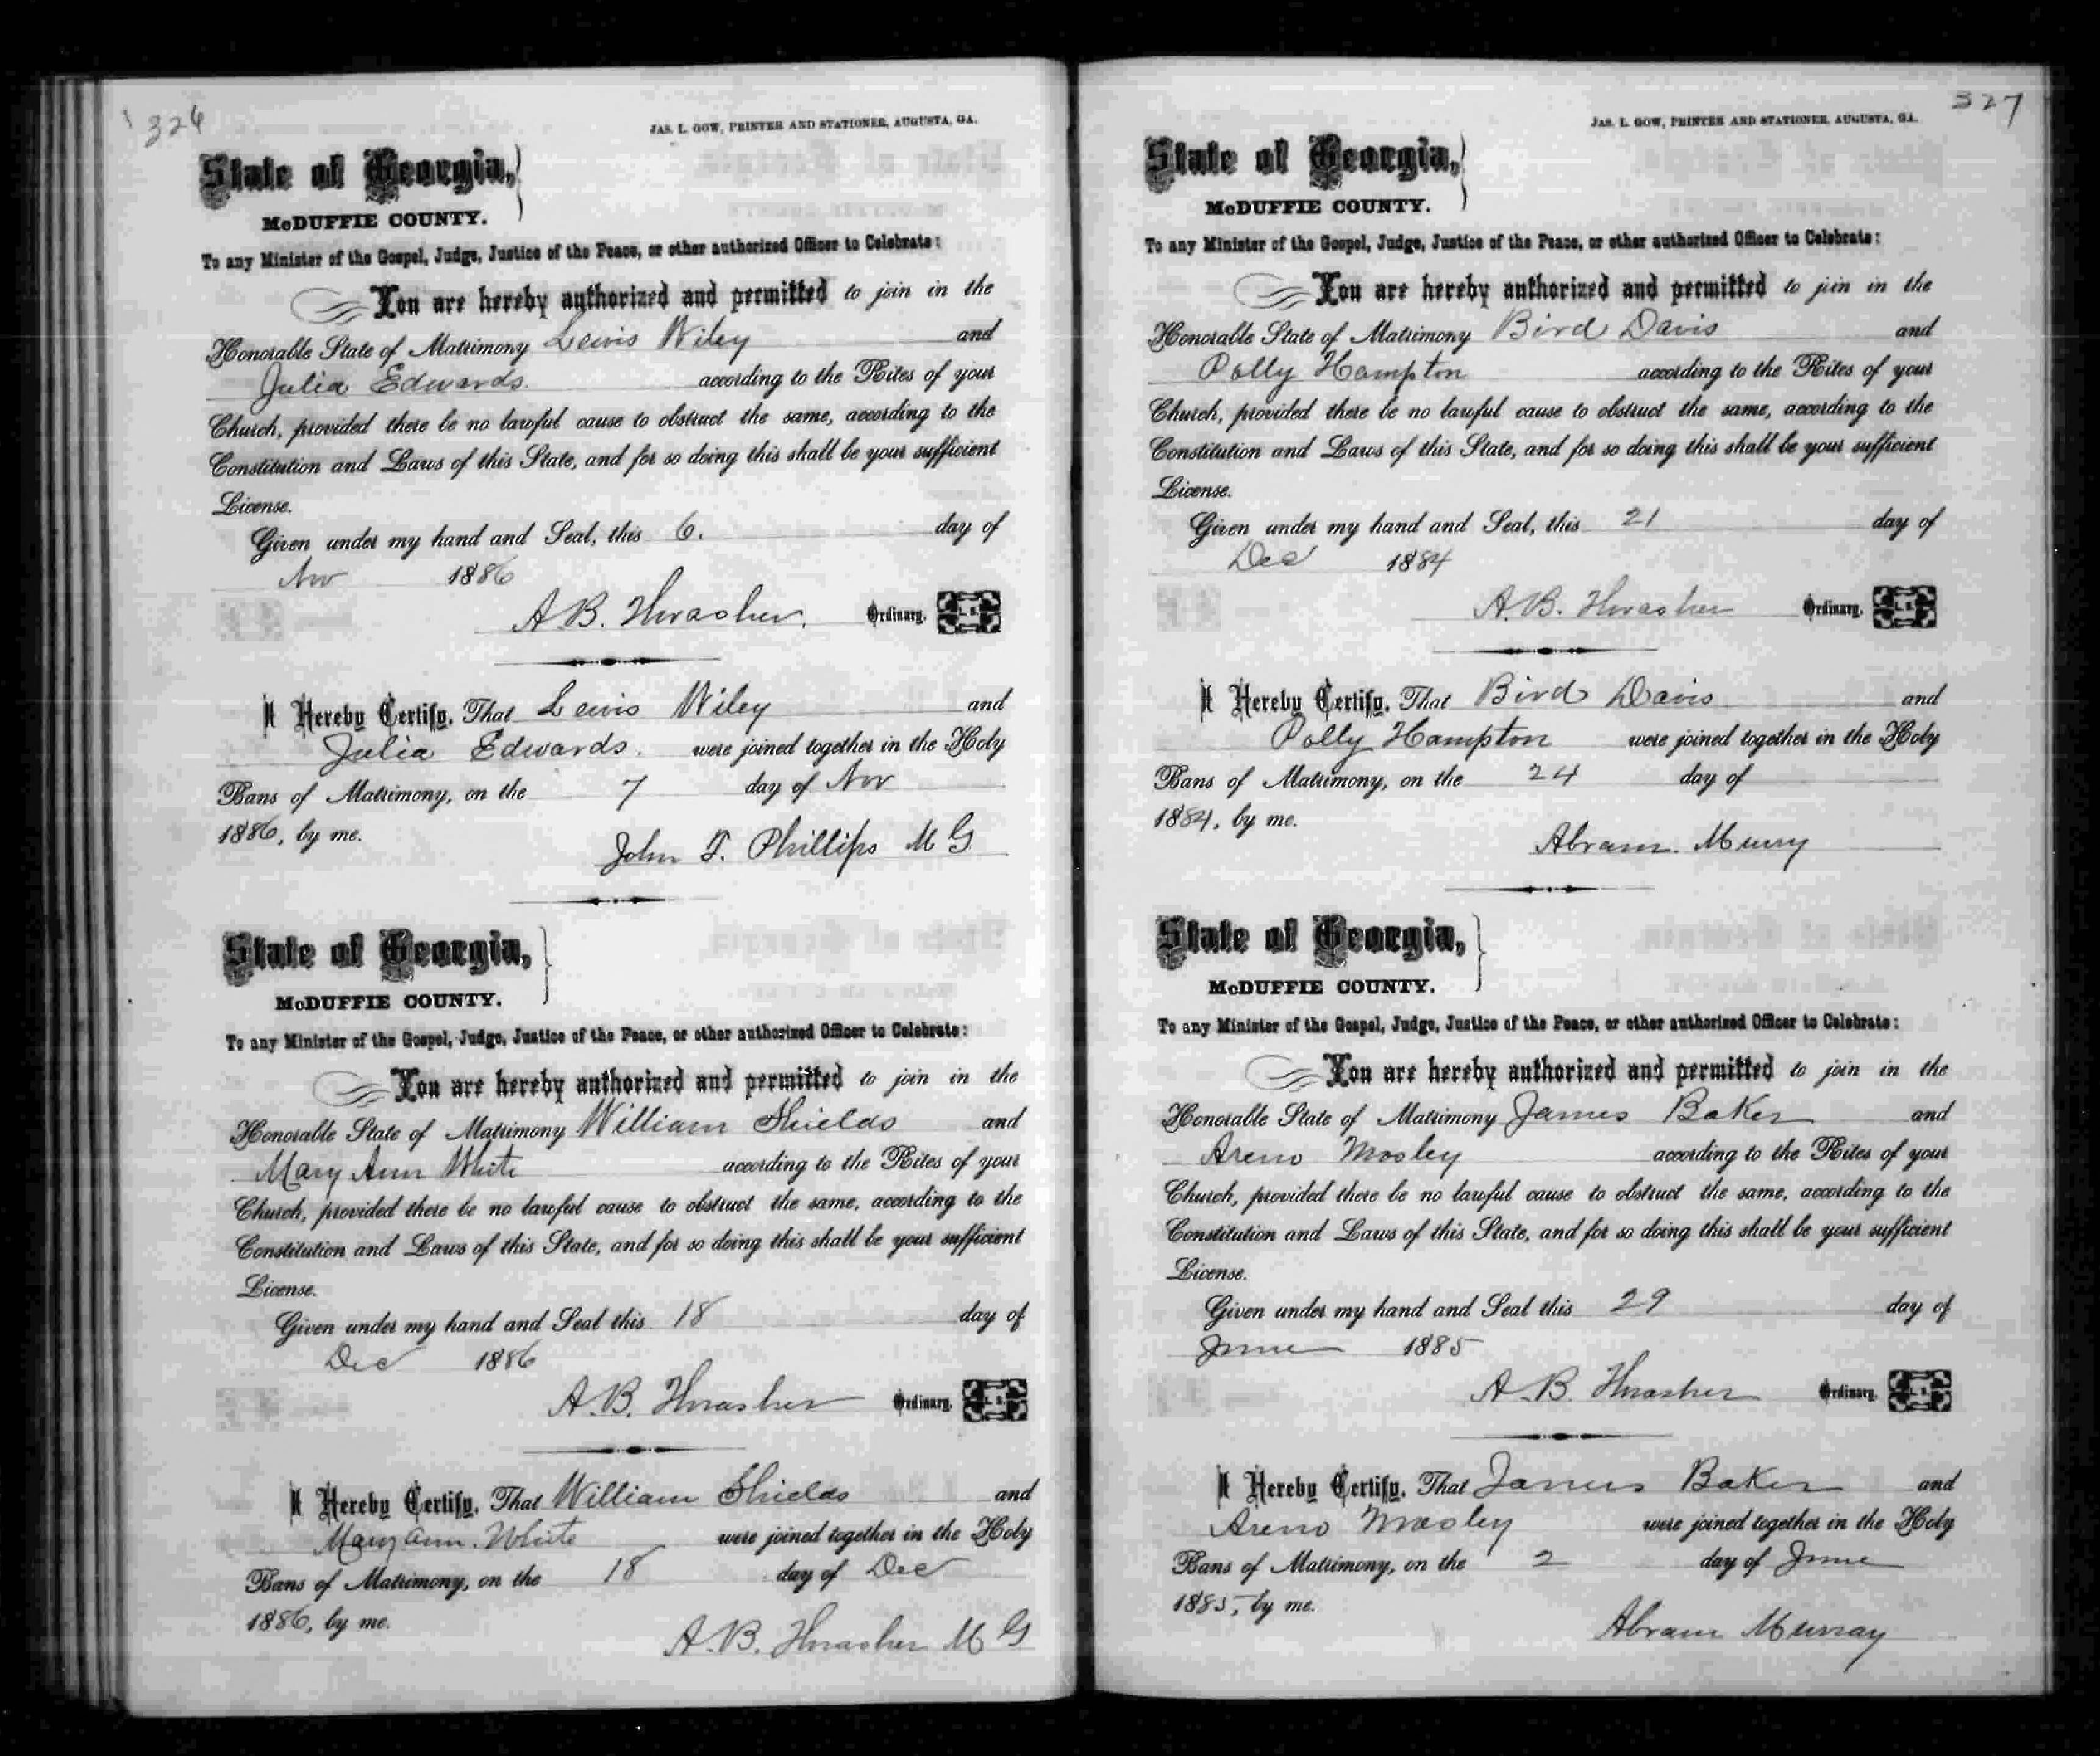 326
JAS. L. GOW, PRINTER AND STATIONER, AUGUSTA, GA.
State of Georgia,
McDUFFIE COUNTY.
To any Minister of the Gospel, Judge, Justice of the Peace, or other authorized Officer to Celebrate:
You are hereby authorized and permitted to join in the
Honorable State of Matrimony Lewis Wiley and
Julia Edwards. according to the Rites of your
Church, provided there be no lawful cause to obstruct the same, according to the
Constitution and Laws of this State, and for so doing this shall be your sufficient
License.
Given under my hand and Seal, this 6. day of
Nov 1886
A B. Thrasher. Ordinary. L. S.
I Hereby Certify, That Lewis Wiley and
Julia Edwards. were joined together in the Holy
Bans of Matrimony, on the 7 day of Nov
1886, by me.
John T. Phillips M G
State of Georgia,
McDUFFIE COUNTY.
To any Minister of the Gospel, Judge, Justice of the Peace, or other authorized Officer to Celebrate:
You are hereby authorized and permitted to join in the
Honorable State of Matrimony William Shields and
Mary Ann White according to the Rites of your
Church, provided there be no lawful cause to obstruct the same, according to the
Constitution and Laws of this State, and for so doing this shall be your sufficient
License.
Given under my hand and Seal this 18 day of
Dec 1886
A.B. Thrasher Ordinary. L. S.
I Hereby Certify, That William Shields and
Mary Ann. White were joined together in the Holy
Bans of Matrimony, on the 18 day of Dec
1886, by me.
A.B. Thrasher M G
327
JAS. L. GOW, PRINTER AND STATIONER, AUGUSTA, GA.
State of Georgia,
McDUFFIE COUNTY.
To any Minister of the Gospel, Judge, Justice of the Peace, or other authorized Officer to Celebrate:
You are hereby authorized and permitted to join in the
Honorable State of Matrimony Bird Davis and
Polly Hampton according to the Rites of your
Church, provided there be no lawful cause to obstruct the same, according to the
Constitution and Laws of this State, and for so doing this shall be your sufficient
License.
Given under my hand and Seal, this 21 day of
Dec 1884
A.B. Thrasher Ordinary. L. S.
I Hereby Certify, That Bird Davis and
Polly Hampton were joined together in the Holy
Bans of Matrimony, on the 24 day of
1884, by me.
Abram. Murry
State of Georgia,
McDUFFIE COUNTY.
To any Minister of the Gospel, Judge, Justice of the Peace, or other authorized Officer to Celebrate:
You are hereby authorized and permitted to join in the
Honorable State of Matrimony James Baker and
Areno Mosley according to the Rites of your
Church, provided there be no lawful cause to obstruct the same, according to the
Constitution and Laws of this State, and for so doing this shall be your sufficient
License.
Given under my hand and Seal this 29 day of
June 1885
A.B. Thrasher Ordinary. L. S.
I Hereby Certify, That James Baker and
Areno Mosley were joined together in the Holy
Bans of Matrimony, on the 2 day of June
1885, by me.
Abram Murray